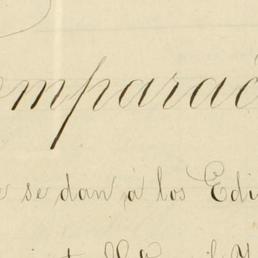 omparac
e se dan á los Edi